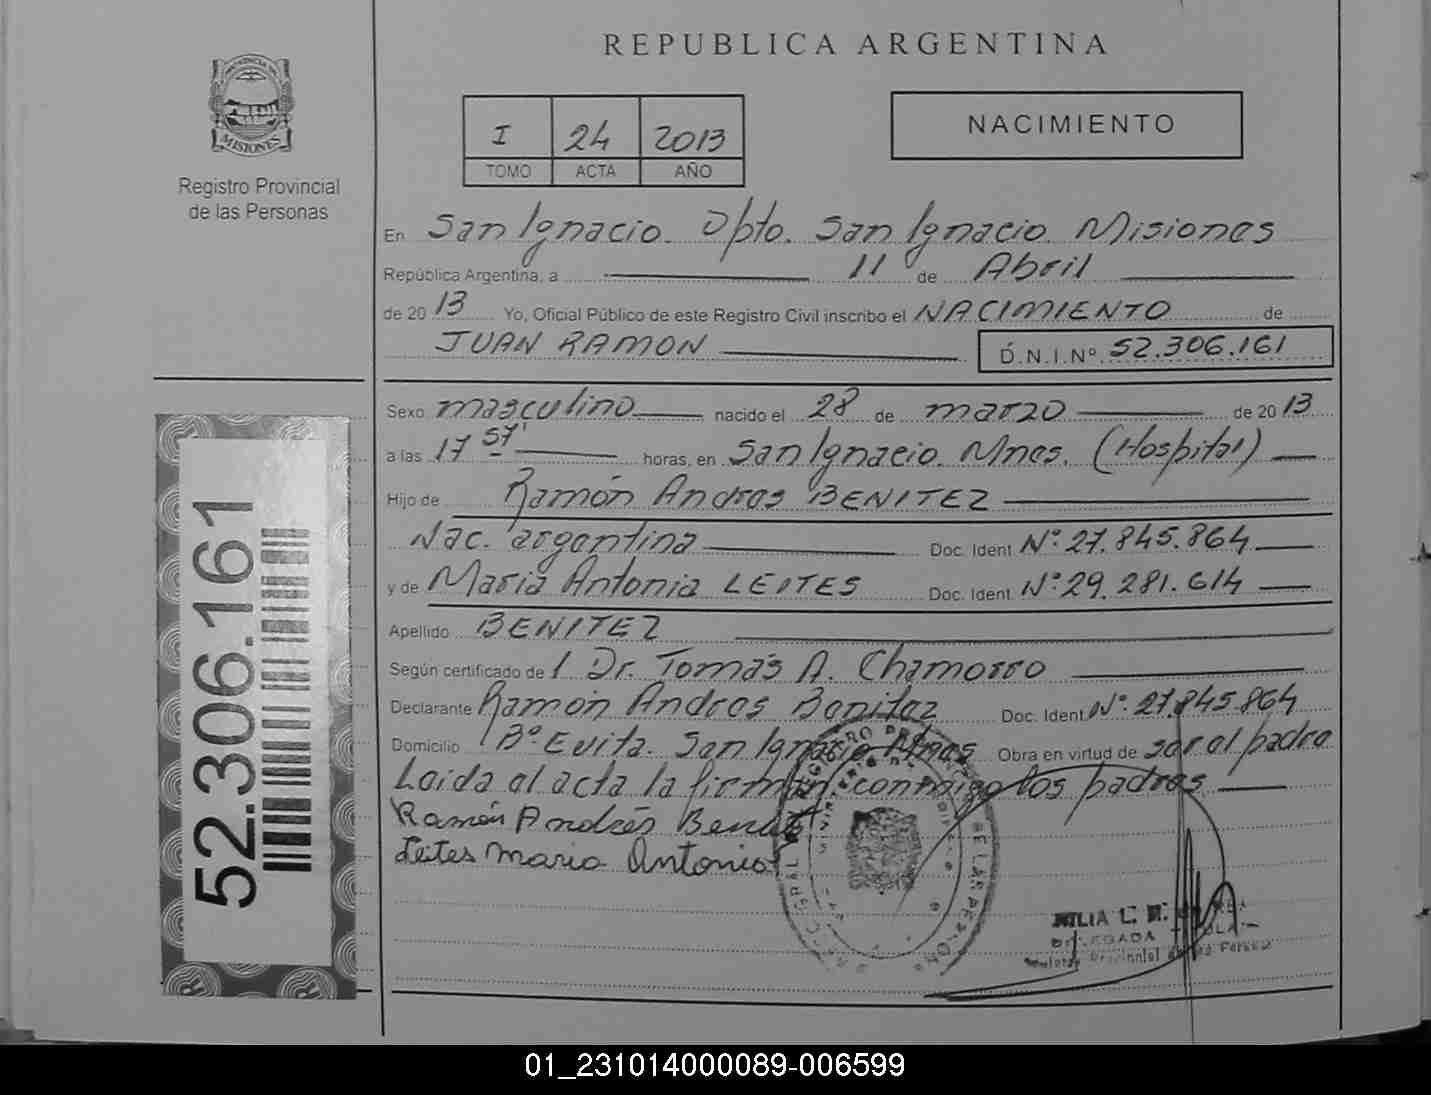 REPUBLICA ARGENTINA
PROVINCIA DE
MISIONES
Registro Provincial
de las Personas
I 24 2013
TOMO ACTA AÑO
NACIMIENTO
En San Ignacio. Dpto. San Ignacio. Misiones
República Argentina, a 11 de Abril
de 2013 Yo, Oficial Público de este Registro Civil inscribo el NACIMIENTO de
JUAN RAMON D.N.I.Nº 52.306.161
Sexo masculino nacido el 28 de marzo de 2013
a las 17 57' horas, en San Ignacio. Mnes. (Hospital)
Hijo de Ramón Andres BENITEZ
Nac. argentina Doc. Ident Nº 27.845.864
y de Maria Antonia LEITES Doc. Ident. Nº 29.281.614
Apellido BENITEZ
Según certificado de / Dr. Tomás A. Chamorro
Declarante Ramón Andres Benitez Doc. Ident. Nº 27.845.864
Domicilio Bº Evita. San Ignacio Mnes Obra en virtud de ser el padre
Leida el acta la firman conmigo los padres
Ramón Andrés Benitez
Leites Maria Antonia
52.306.161
JULIA C.
DELEGADA TITULAR
Registro Provincial de las Personas
01_231014000089-006599